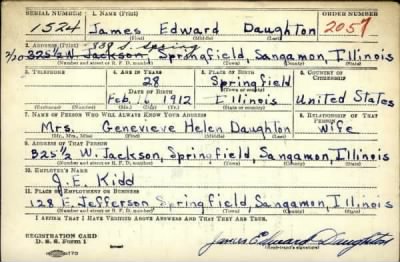 SERIAL NUMBER 1. NAME (Print) ORDER NUMBER
1524 James Edward Daughton 2057
(First) (Middle) (Last)
2. ADDRESS (Print) 838 S. Spring
325½ W. Jackson, Springfield, Sangamon, Illinois
(Number and street or R. F. D. number) (Town) (County) (State)
3. TELEPHONE 4. AGE IN YEARS 5. PLACE OF BIRTH 6. COUNTRY OF CITIZENSHIP
28 Springfield
DATE OF BIRTH (Town or county)
Feb. 16 1912 Illinois United States
(Mo.) (Day) (Yr.) (State or country)
7. NAME OF PERSON WHO WILL ALWAYS KNOW YOUR ADDRESS 8. RELATIONSHIP OF THAT PERSON
Mrs. Genevieve Helen Daughton Wife
(Mr., Mrs., Miss) (First) (Middle) (Last)
9. ADDRESS OF THAT PERSON
325½ W. Jackson, Springfield, Sangamon, Illinois
(Number and street or R. F. D. number) (Town) (County) (State)
10. EMPLOYER'S NAME
J. E. Kidd
11. PLACE OF EMPLOYMENT OR BUSINESS
128 E. Jefferson Springfield, Sangamon, Illinois
(Number and street or R. F. D. number) (Town) (County) (State)
I AFFIRM THAT I HAVE VERIFIED ABOVE ANSWERS AND THAT THEY ARE TRUE.
REGISTRATION CARD
D. S. S. Form 1 James Edward Daughton
(Registrant's signature)